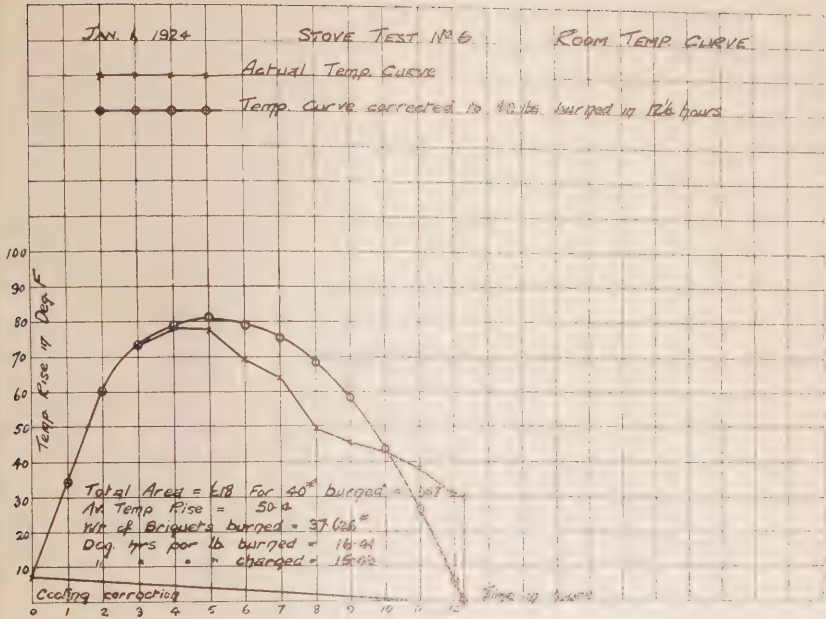 JAN. 1, 1924 STOVE TEST Nº 6 ROOM TEMP. CURVE
Actual Temp. Curve
Temp. Curve corrected to 40 lbs. burned in 12¼ hours
100
90
80
70
60
50
40
30
20
10
0
Temp Rise in Deg. F
Total Area = 618 For 40# burned =
Av. Temp Rise = 50.4
Wt of Briquets burned = 37.626#
Deg. hrs per lb burned = 16.41
" " " " charged =
Cooling correction
Time in hours
0 1 2 3 4 5 6 7 8 9 10 11 12